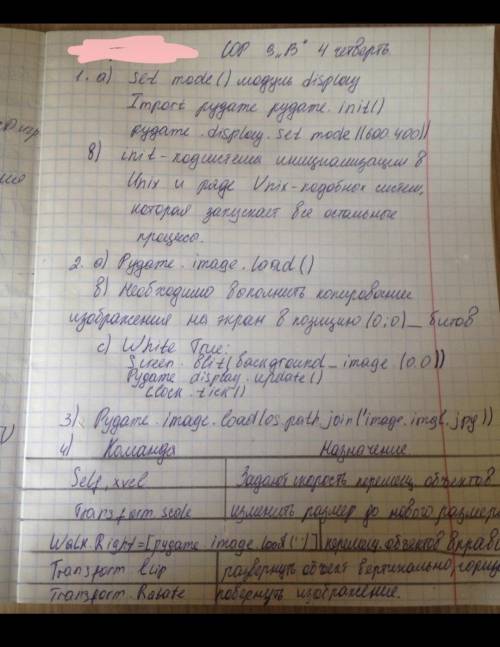 СОР 3 „В" 4 четверть
1. а) Set mode() модуль display
Import pygame pygame.init()
pygame.display.set mode((600.400))
в) init - подсистема инициализации в
Unix и ряде Unix-подобных систем,
которая запускает все остальные
процесс.
2. а) Pygame.image.load()
в) Необходимо выполнить копирование
изображения на экран в позицию (0;0)_битов
с) White True:
Screen.blit(background_image (0.0))
Pygame display.update()
clock.tick()
3) Pygame.image.load(os.path.join('image.img1.jpg'))
4) Команда Назначение
Self, xvel Задают скорость перемещ. объектов
Transform scale изменить размер до нового размера
Walk.Right=[pygame.image.load('')] перемещ. объектов вправо
Transform flip развернуть объект вертикально,
Transform Rotate повернуть изображение.